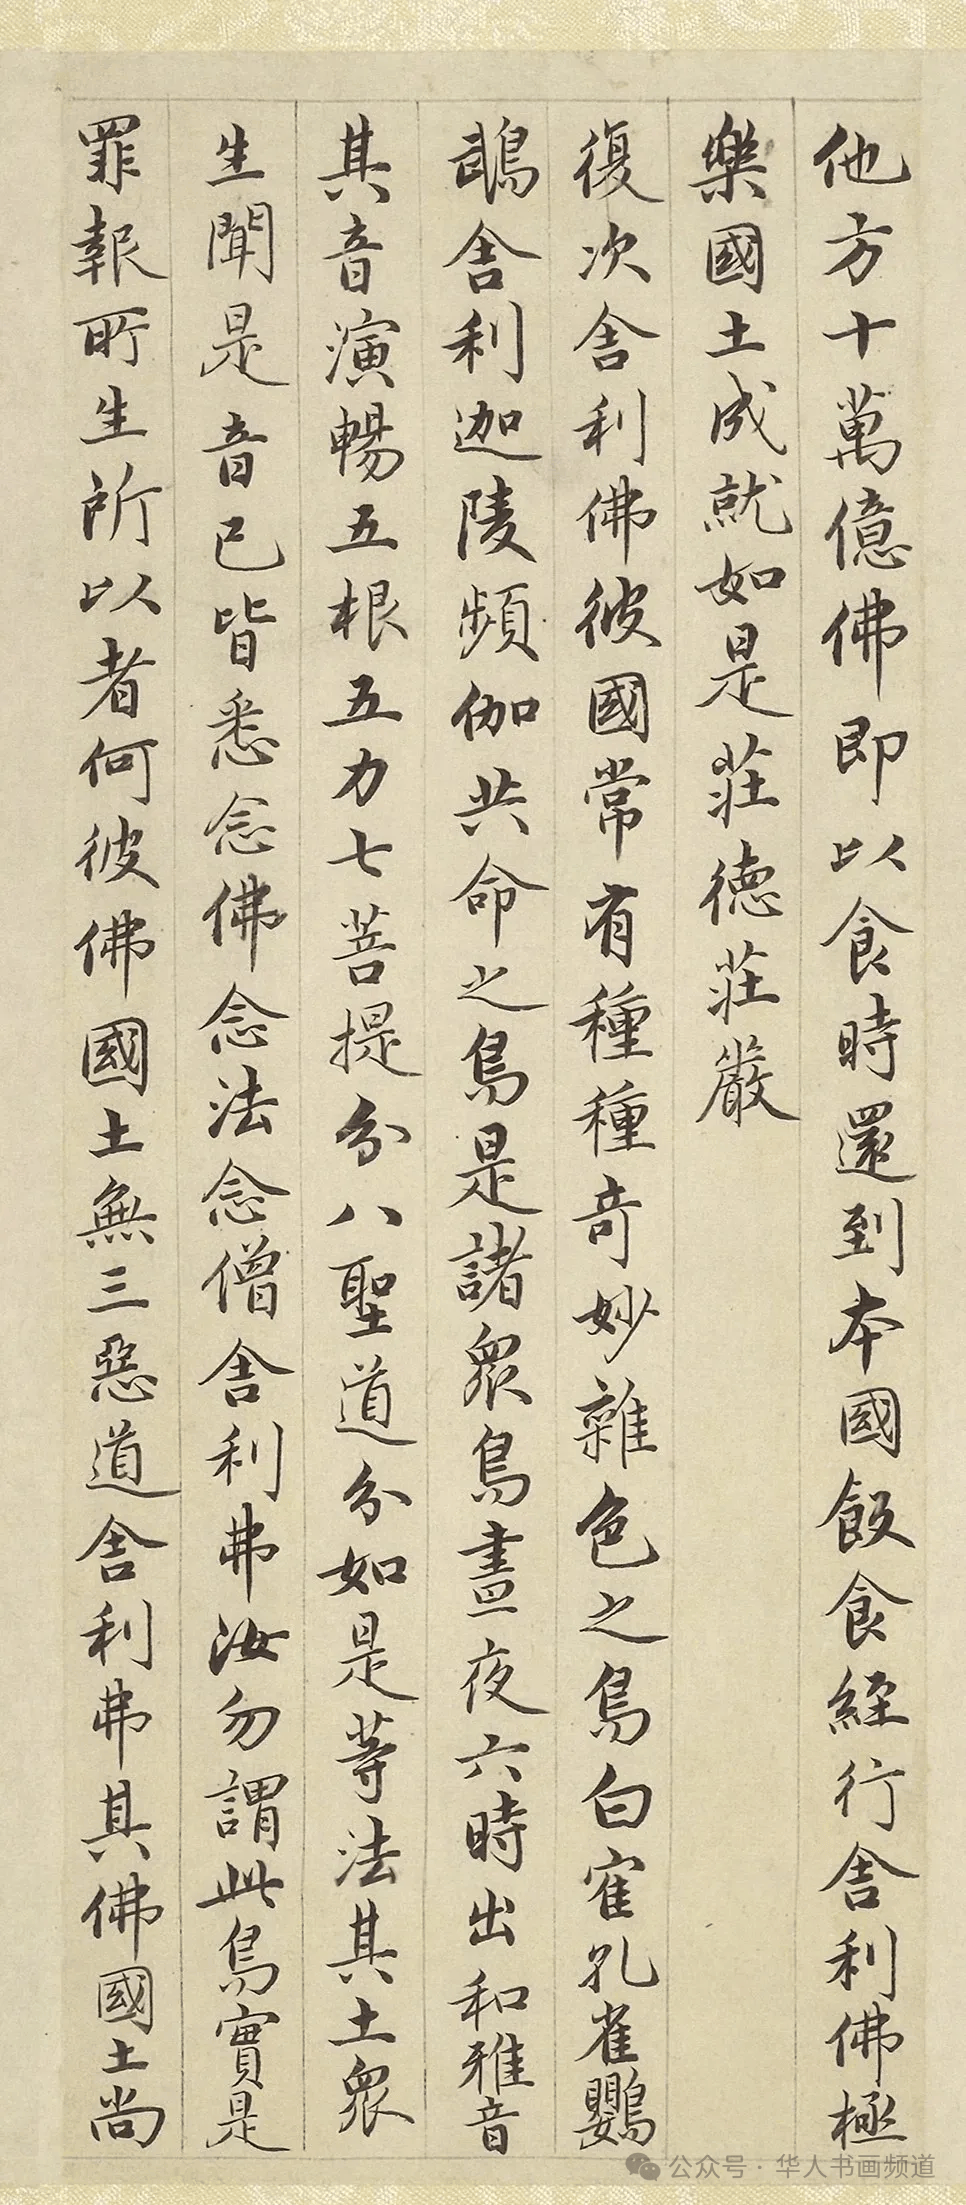 他方十萬億佛即以食時還到本國飯食經行舍利佛極
樂國土成就如是莊德莊嚴
復次舍利佛彼國常有種種奇妙雜色之鳥白隺孔雀鸚
鵡舍利迦陵頻伽共命之鳥是諸眾鳥晝夜六時出和雅音
其音演暢五根五力七菩提分八聖道分如是等法其土眾
生聞是音已皆悉念佛念法念僧舍利弗汝勿謂此鳥實是
罪報所生所以者何彼佛國土無三惡道舍利弗其佛國土尚
公众号·华人书画频道